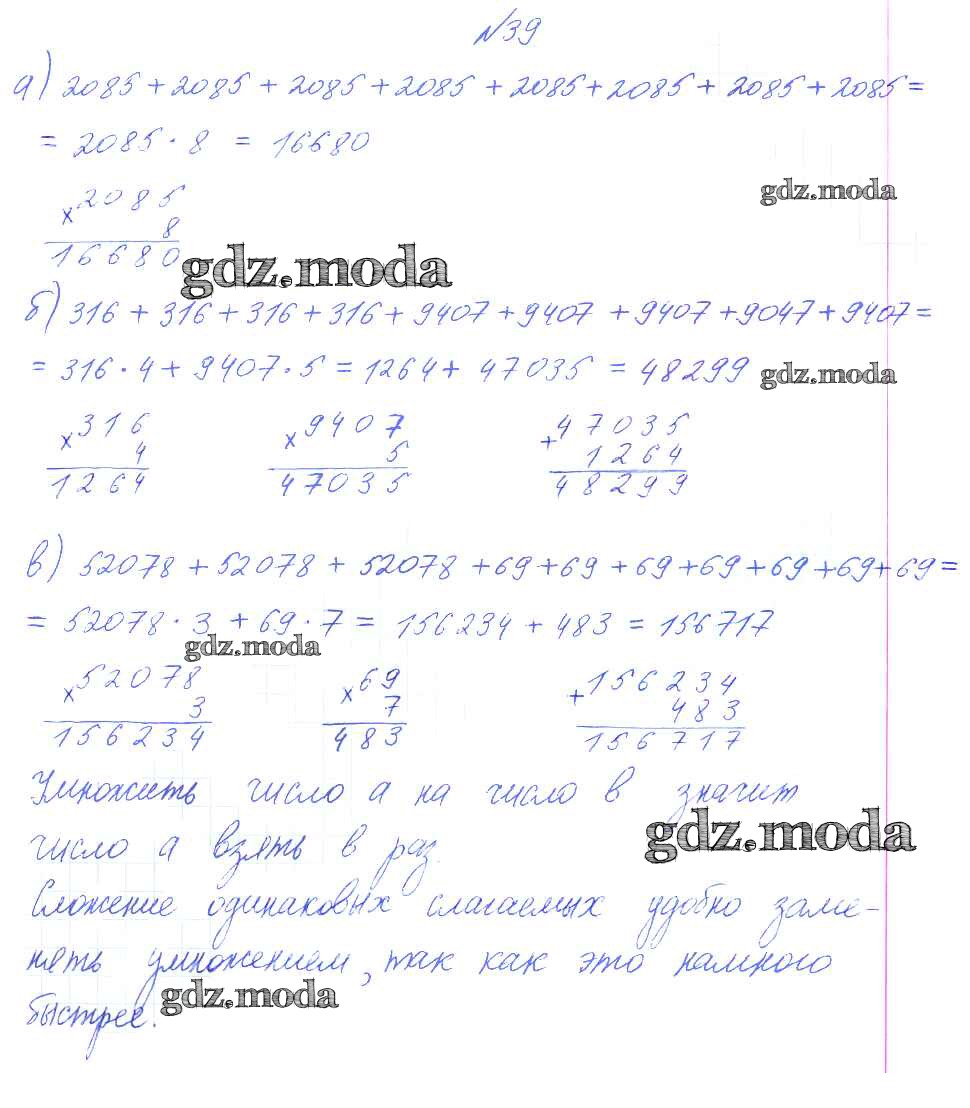 №39
а) 2085 + 2085 + 2085 + 2085 + 2085 + 2085 + 2085 + 2085 =
= 2085 · 8 = 16680
gdz.moda
× 2085
8
16680
gdz.moda
б) 316 + 316 + 316 + 316 + 9407 + 9407 + 9407 + 9047 + 9407 =
= 316 · 4 + 9407 · 5 = 1264 + 47035 = 48299
gdz.moda
× 316 × 9407 + 47035
4 5 1264
1264 47035 48299
в) 52078 + 52078 + 52078 + 69 + 69 + 69 + 69 + 69 + 69 + 69 =
= 52078 · 3 + 69 · 7 = 156234 + 483 = 156717
gdz.moda
× 52078 × 69 + 156234
3 7 483
156234 483 156717
Умножить число а на число в значит
gdz.moda
число а взять в раз.
Сложение одинаковых слагаемых удобно заме-
нять умножением, так как это намного
gdz.moda
быстрее.